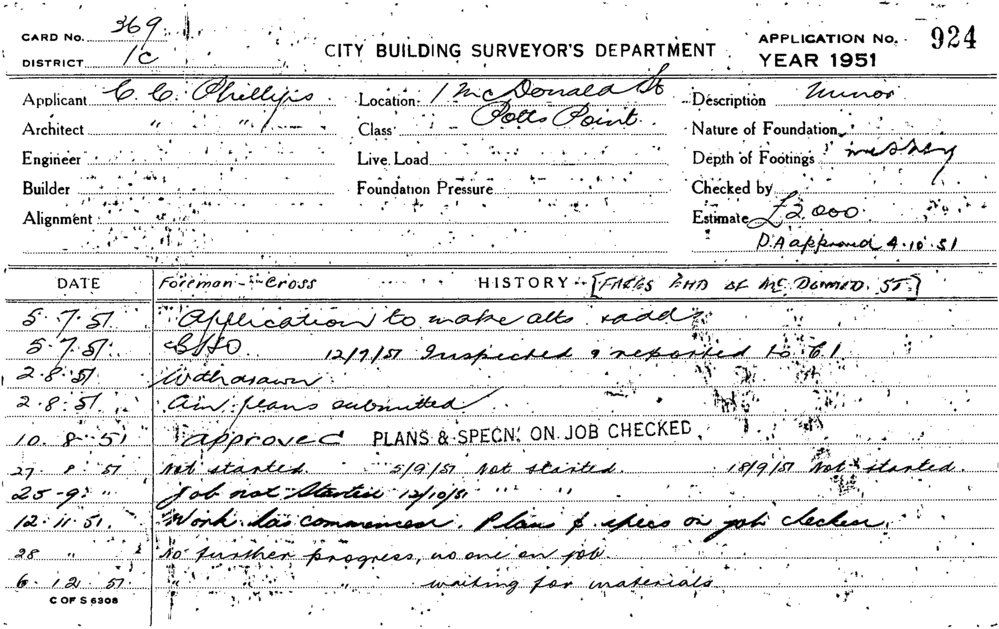 CARD No. 369
DISTRICT 1C
CITY BUILDING SURVEYOR'S DEPARTMENT
APPLICATION No. 924
YEAR 1951
Applicant C. C. Phillips
Location 1 McDonald St
Potts Point.
Description Minor
Architect " " "
Class
Nature of Foundation
Engineer
Live Load
Depth of Footings
Builder
Foundation Pressure
Checked by
Alignment
Estimate £2000
D.A approved 4.10.51
DATE
Foreman - Cross
HISTORY [FACES END OF McDONALD ST.]
5.7.51 Application to make alts & adds
5.7.51 12/7/51 Inspected & reported to C1
2.8.51 Withdrawn
2.8.51 Am plans submitted
10.8.51 Approved PLANS & SPECN. ON JOB CHECKED
27 8 51 Not started. 5/9/51 Not started. 18/9/51 Not started.
25-9. " Job not Started 12/10/51 " "
12.11.51. Work has commenced. Plans & specs on job checked.
28 " No further progress, no one on job
6.12.51. " " " waiting for materials
C OF S 6308